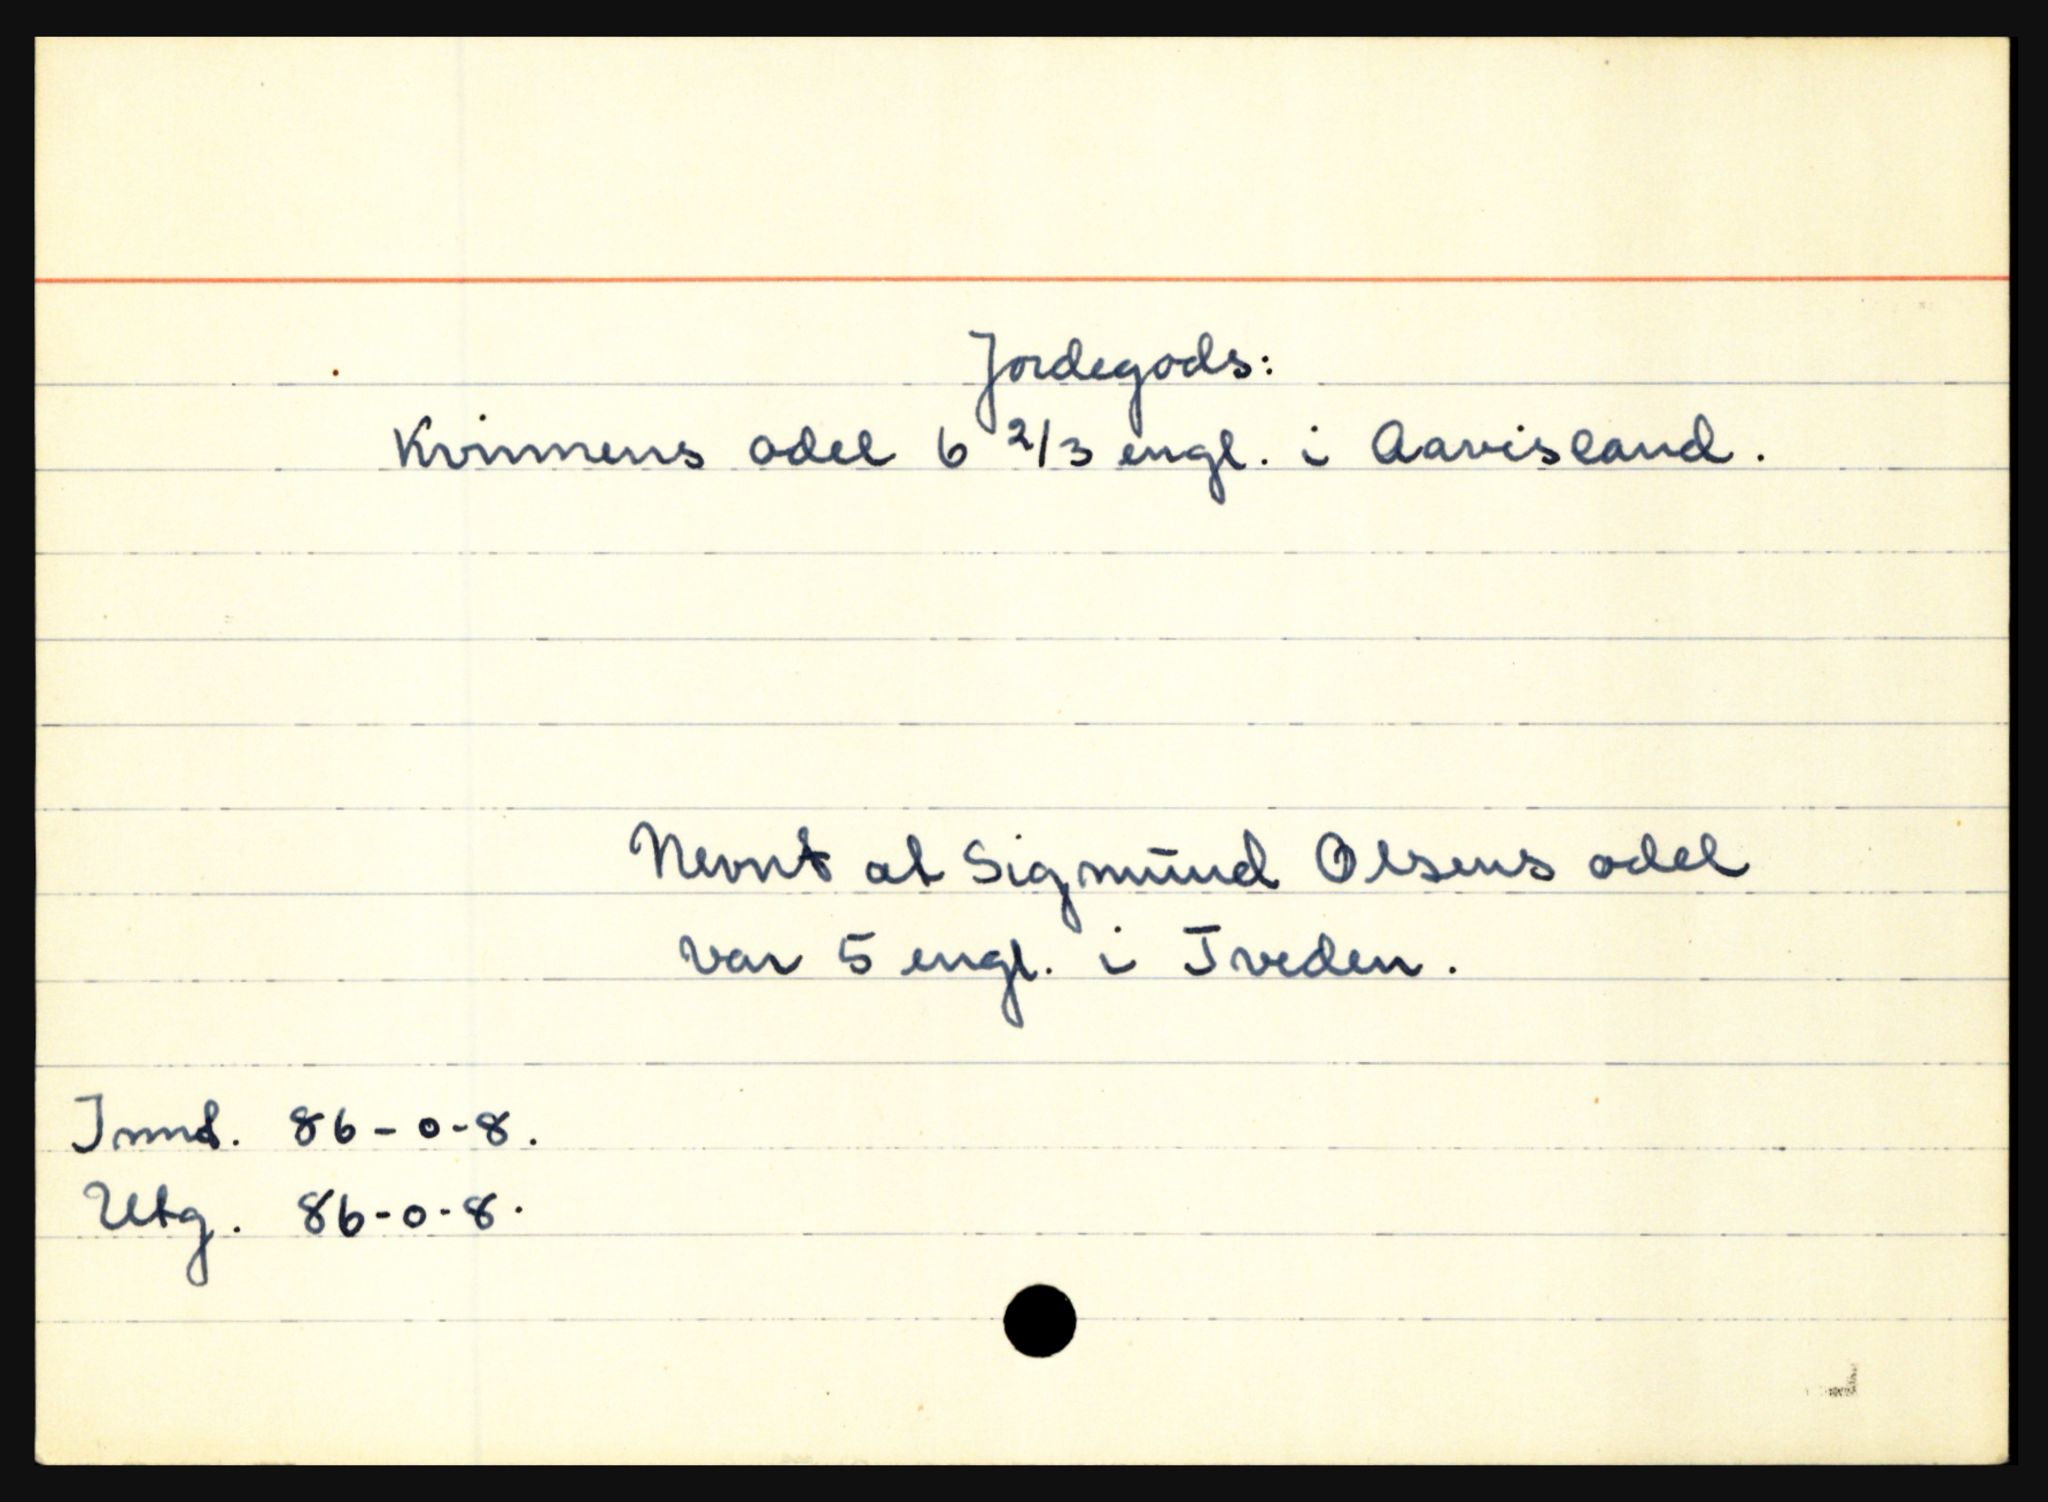 Jordegods:
Kvinnens odel 6 2/3 engl. i Aavisland.
Nevnt at Sigmund Olsens odel
var 5 engl. i Tveden.
Innt. 86-0-8.
Utg. 86-0-8.